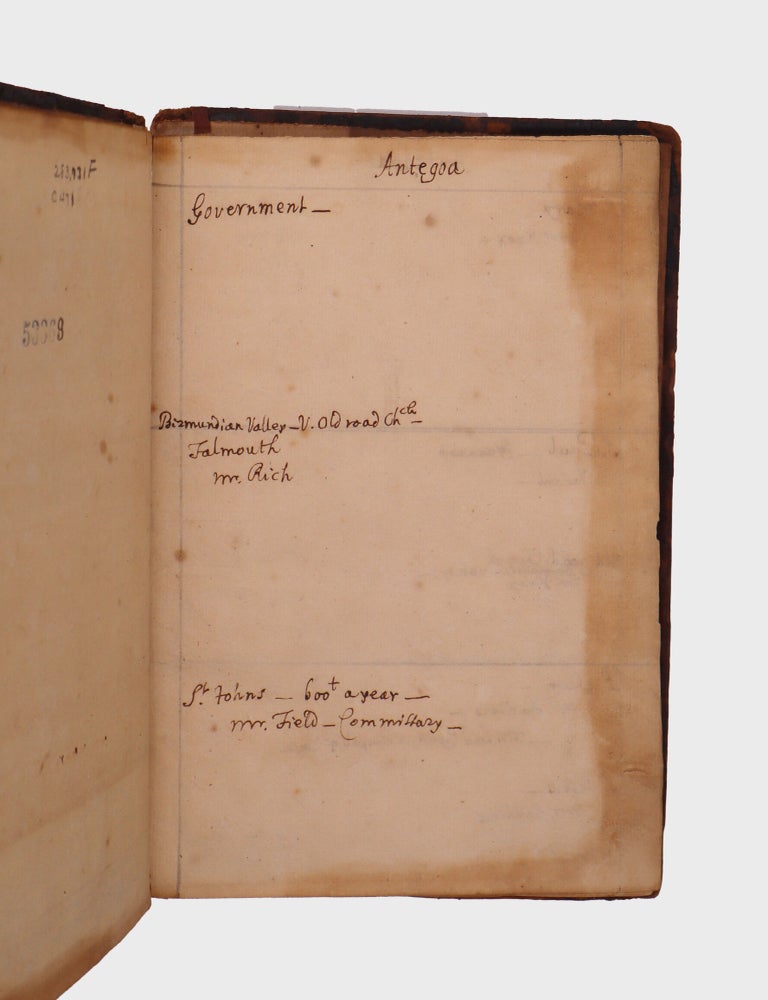 253,731F
C471
53069
Antegoa
Government —
Bermundian Valley — V. Old road Chch —
Falmouth
mr. Rich
St. Johns — 600t a year —
mr. Field — Commissary —